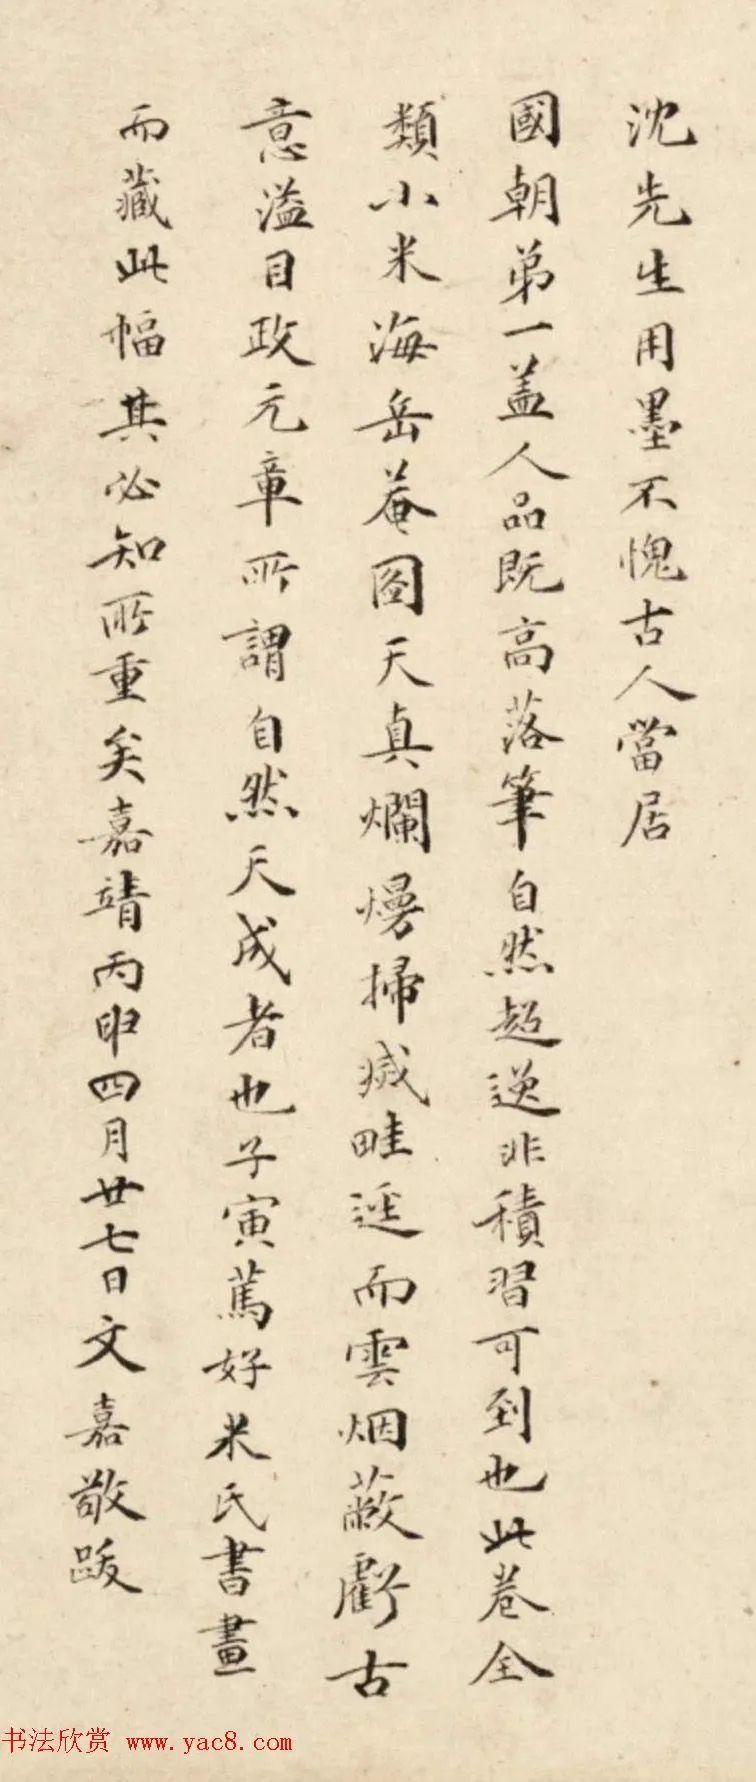 沈先生用墨不愧古人當居
國朝弟一盖人品既高落筆自然超逸非積習可到也此卷全
類小米海岳菴圖天真爛熳掃滅畦逕而雲烟蔽虧古
意溢目政元章所謂自然天成者也子寅篤好米氏書畫
而藏此幅其必知所重矣嘉靖丙申四月廿七日文嘉敬跋
书法欣赏 www.yac8.com